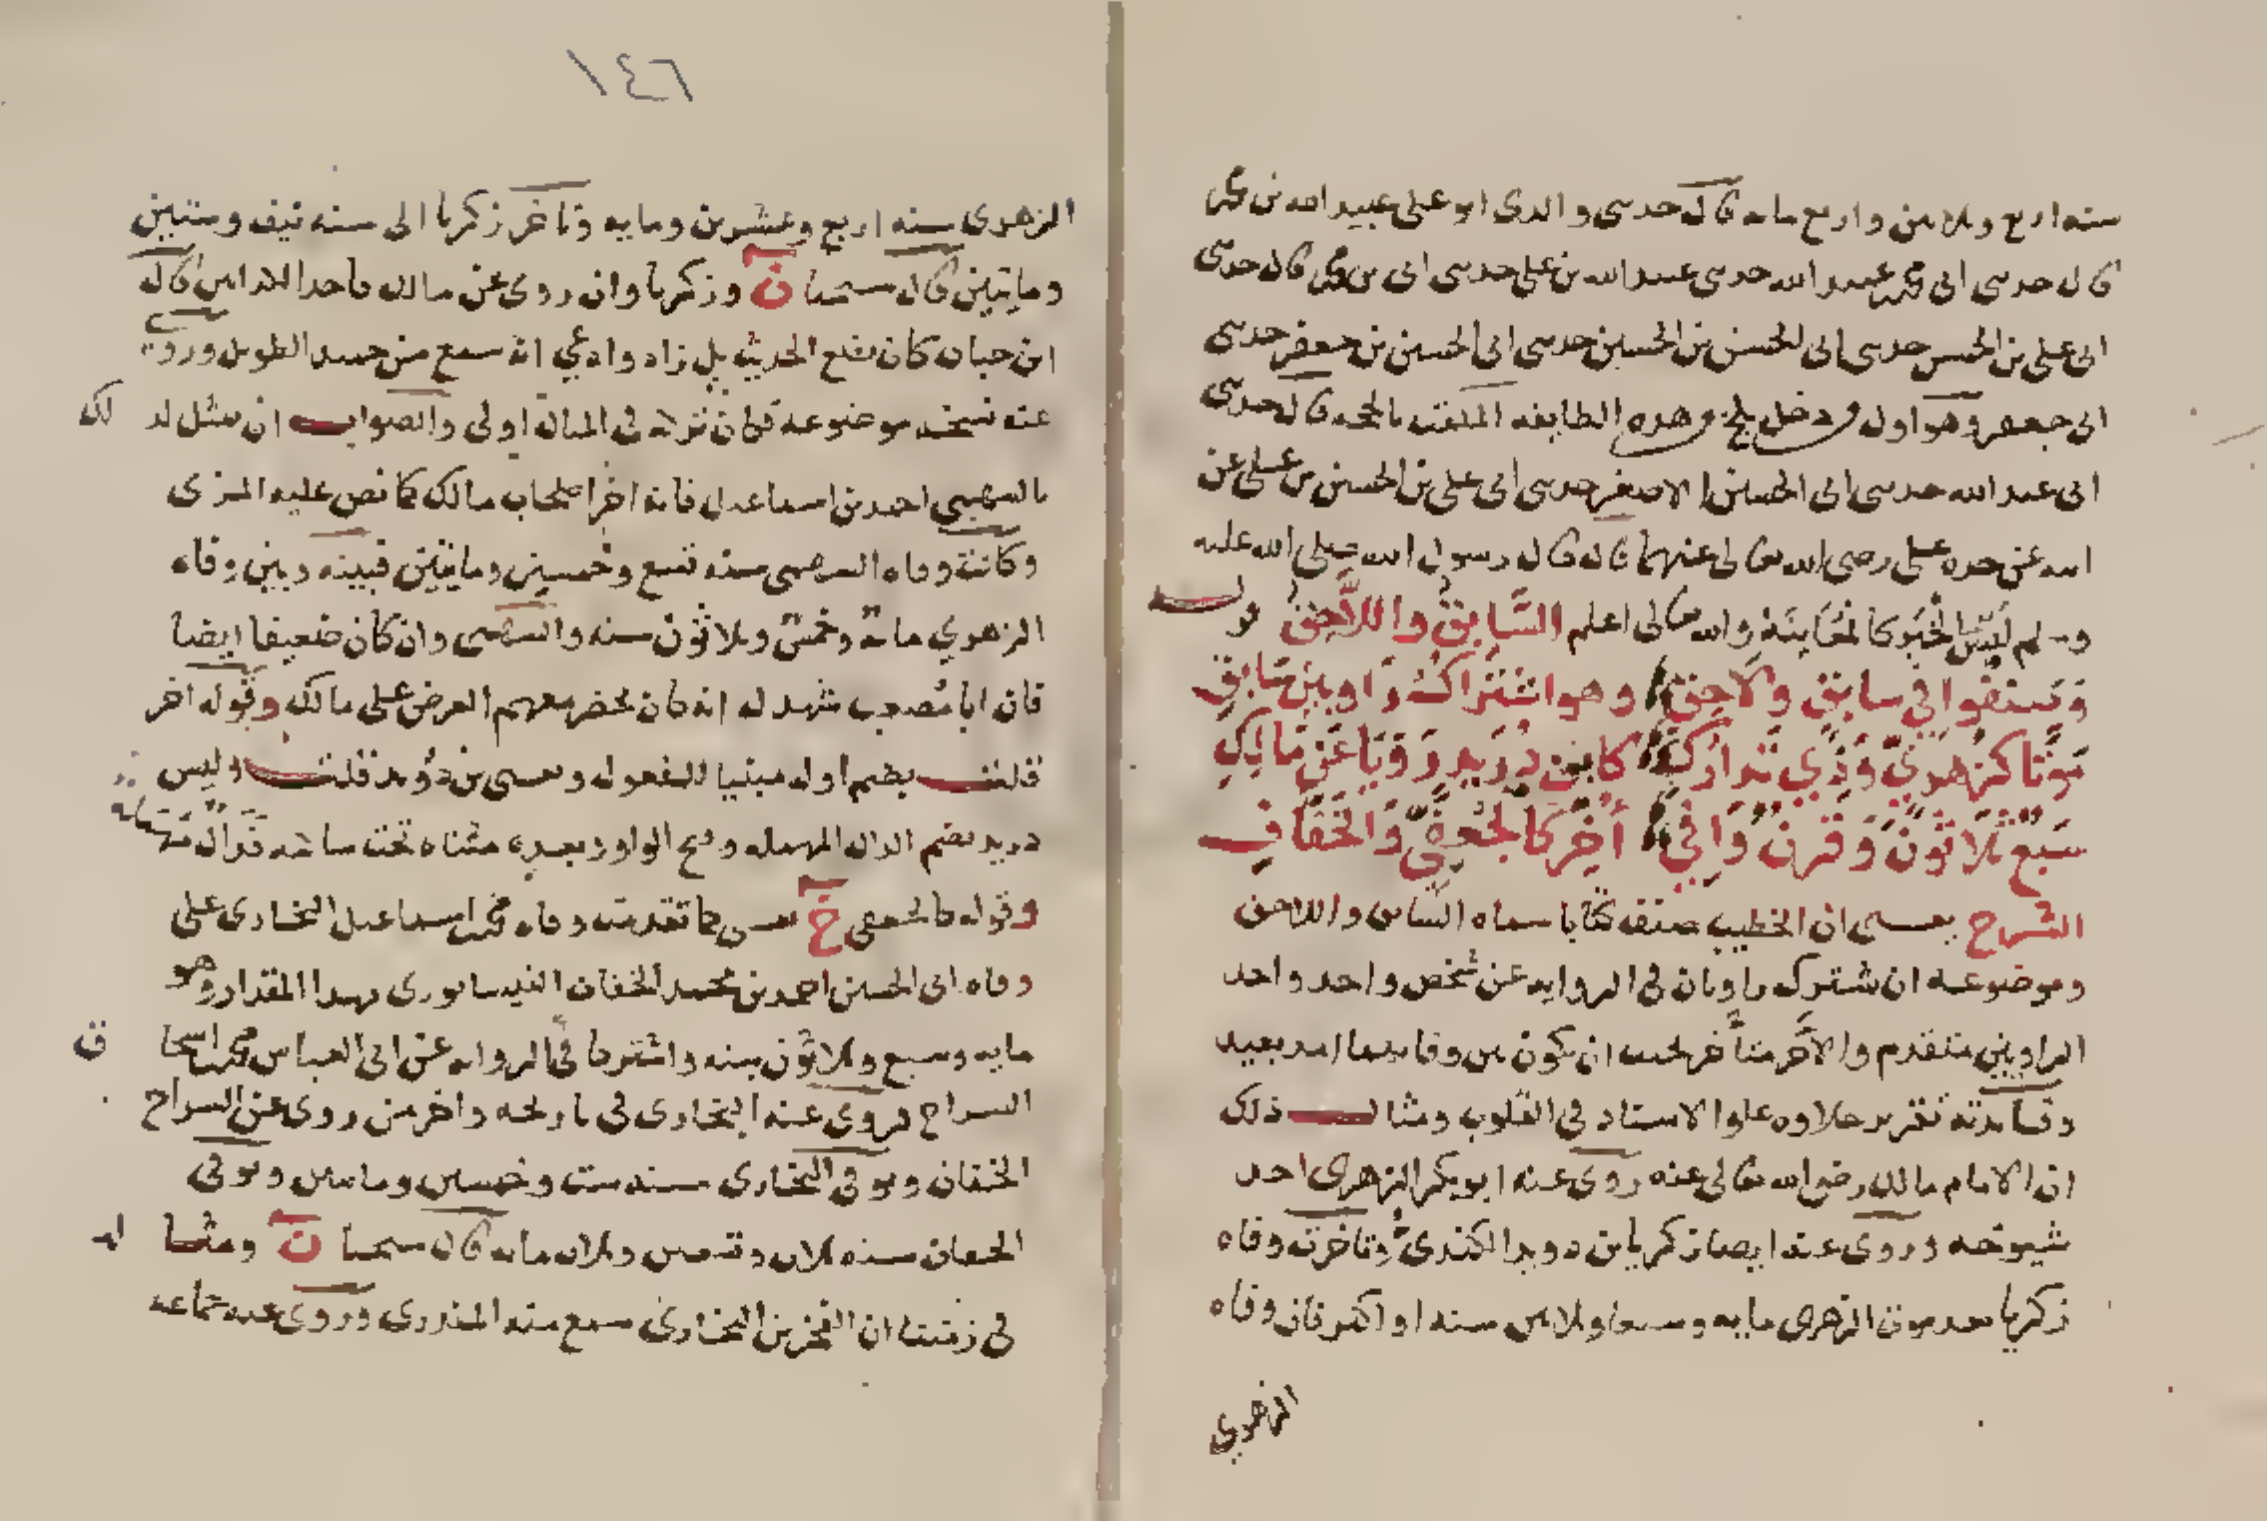 سنه اربع وثلاثين واربع مايه قال حدثني والدي ابو على عبيد الله بن محمد
قال حدثني ابي محمد عبيد الله حدثني عبيد الله بن على حدثني ابي بن محمد قال حدثني
ابى على بن الحسن حدثني ابى الحسن بن الحسين حدثني ابى الحسين بن جعفر حدثني
ابى جعفر وهو اول من دخل بلخ من هذه الطايفه الملقب بالحجه قال حدثني
ابى عبد الله حدثني ابى الحسين الاصغر حدثني ابى على بن الحسين بن على عن
ابيه عن جده على رضى الله تعالى عنهما قال قال رسول الله صلى الله عليه
وسلم لَيْسَ الْخَبَرُ كَالْمُعَايَنَة والله تعالى اعلم السَّابِقُ واللَّاحِقُ
وَصنفوا في سابقٍ ولَاحِقِ وهو اشتراكُ رَاويين سَابِقِ
مَوْتًا كزُهرىٍّ وَذِي تَدارُكِ كابن دُرَيدٍ رَوَيَا عَن مَالِكِ
سَبْعٌ ثَلَاثُونَ وَقرنٌ وَافِي أُخِّرَ كالجُعفِيّ وَالخَفَّافِ
الشرح يعنى ان الخطيب صنف كتابا سماه السابق واللاحق
وموضوعه ان يشترك راويان في الروايه عن شخص واحد واحد
الراويين متقدم والاخر متأخر بحيث ان يكون بين وفاتيهما امد بعيد
وفايدته تقرير حلاوه علو الاسناد في القلوب ومثال ذلك
ان الامام مالك رضى الله تعالى عنه روى عنه ابوبكر الزهرى احد
شيوخه وروى عنه ايضا زكريا بن دويد الكندىُّ وتاخرت وفاه
زكريا بعد موت الزهرى مايه وسبعا وثلاثين سنه او اكثر فان وفاه
الزهري
١٤٦
الزهرى سنه اربع وعشرين ومايه وتاخر زكريا الى سنه نيف وستين
ومايتين قال شيخنا ن وزكريا وان روى عن مالك فاحد الكذابين قال
ابن حبان كان يضع الحديث بل زاد وادعي انه سمع من حميد الطويل وروى
عنه نسخه موضوعه فكان تركه في المثال اولى والصواب ان يمثل لذلك
بالسهمي احمد بن اسماعيل فانه اخر اصحاب مالك كما نص عليه المزى
وكانت وفاه السهمى سنه تسع وخمسين ومايتين فبينه وبين وفاه
الزهري مائة وخمسٌ وثلاثون سنه والسهمى وان كان ضعيفا ايضا
فان ابا مصعب شهد له انه كان يحضر معهم العرض على مالك وقوله اخر
قلت بضم اوله مبنيا للمفعول وعيسى بن دُوَيد قلت وليس
دريد بضم الدال المهمله وفتح الواو وبعده مثناه تحت ساكنه ودال مهملة
وقوله كالجعفى خ يعنى كما تقدمت وفاه محمد بن اسماعيل البخارى على
وفاه ابى الحسين احمد بن محمد الخفاف النيسابورى بهذا المقدار وهو
مايه وسبع وثلاثون سنه واشتركا في الروايه عن ابى العباس محمد بن اسحاق
السراج فروى عنه البخارى في تاريخه واخر من روى عن السراج
الخفاف وتوفى البخارى سنه ست وخمسين ومايتين وتوفى
الخفاف سنه ثلاث وتسعين وثلاث مايه قال شيخنا ن ومثاله
في زمننا ان الفخر بن البخارى سمع منه المنذرى وروى عنه جماعه